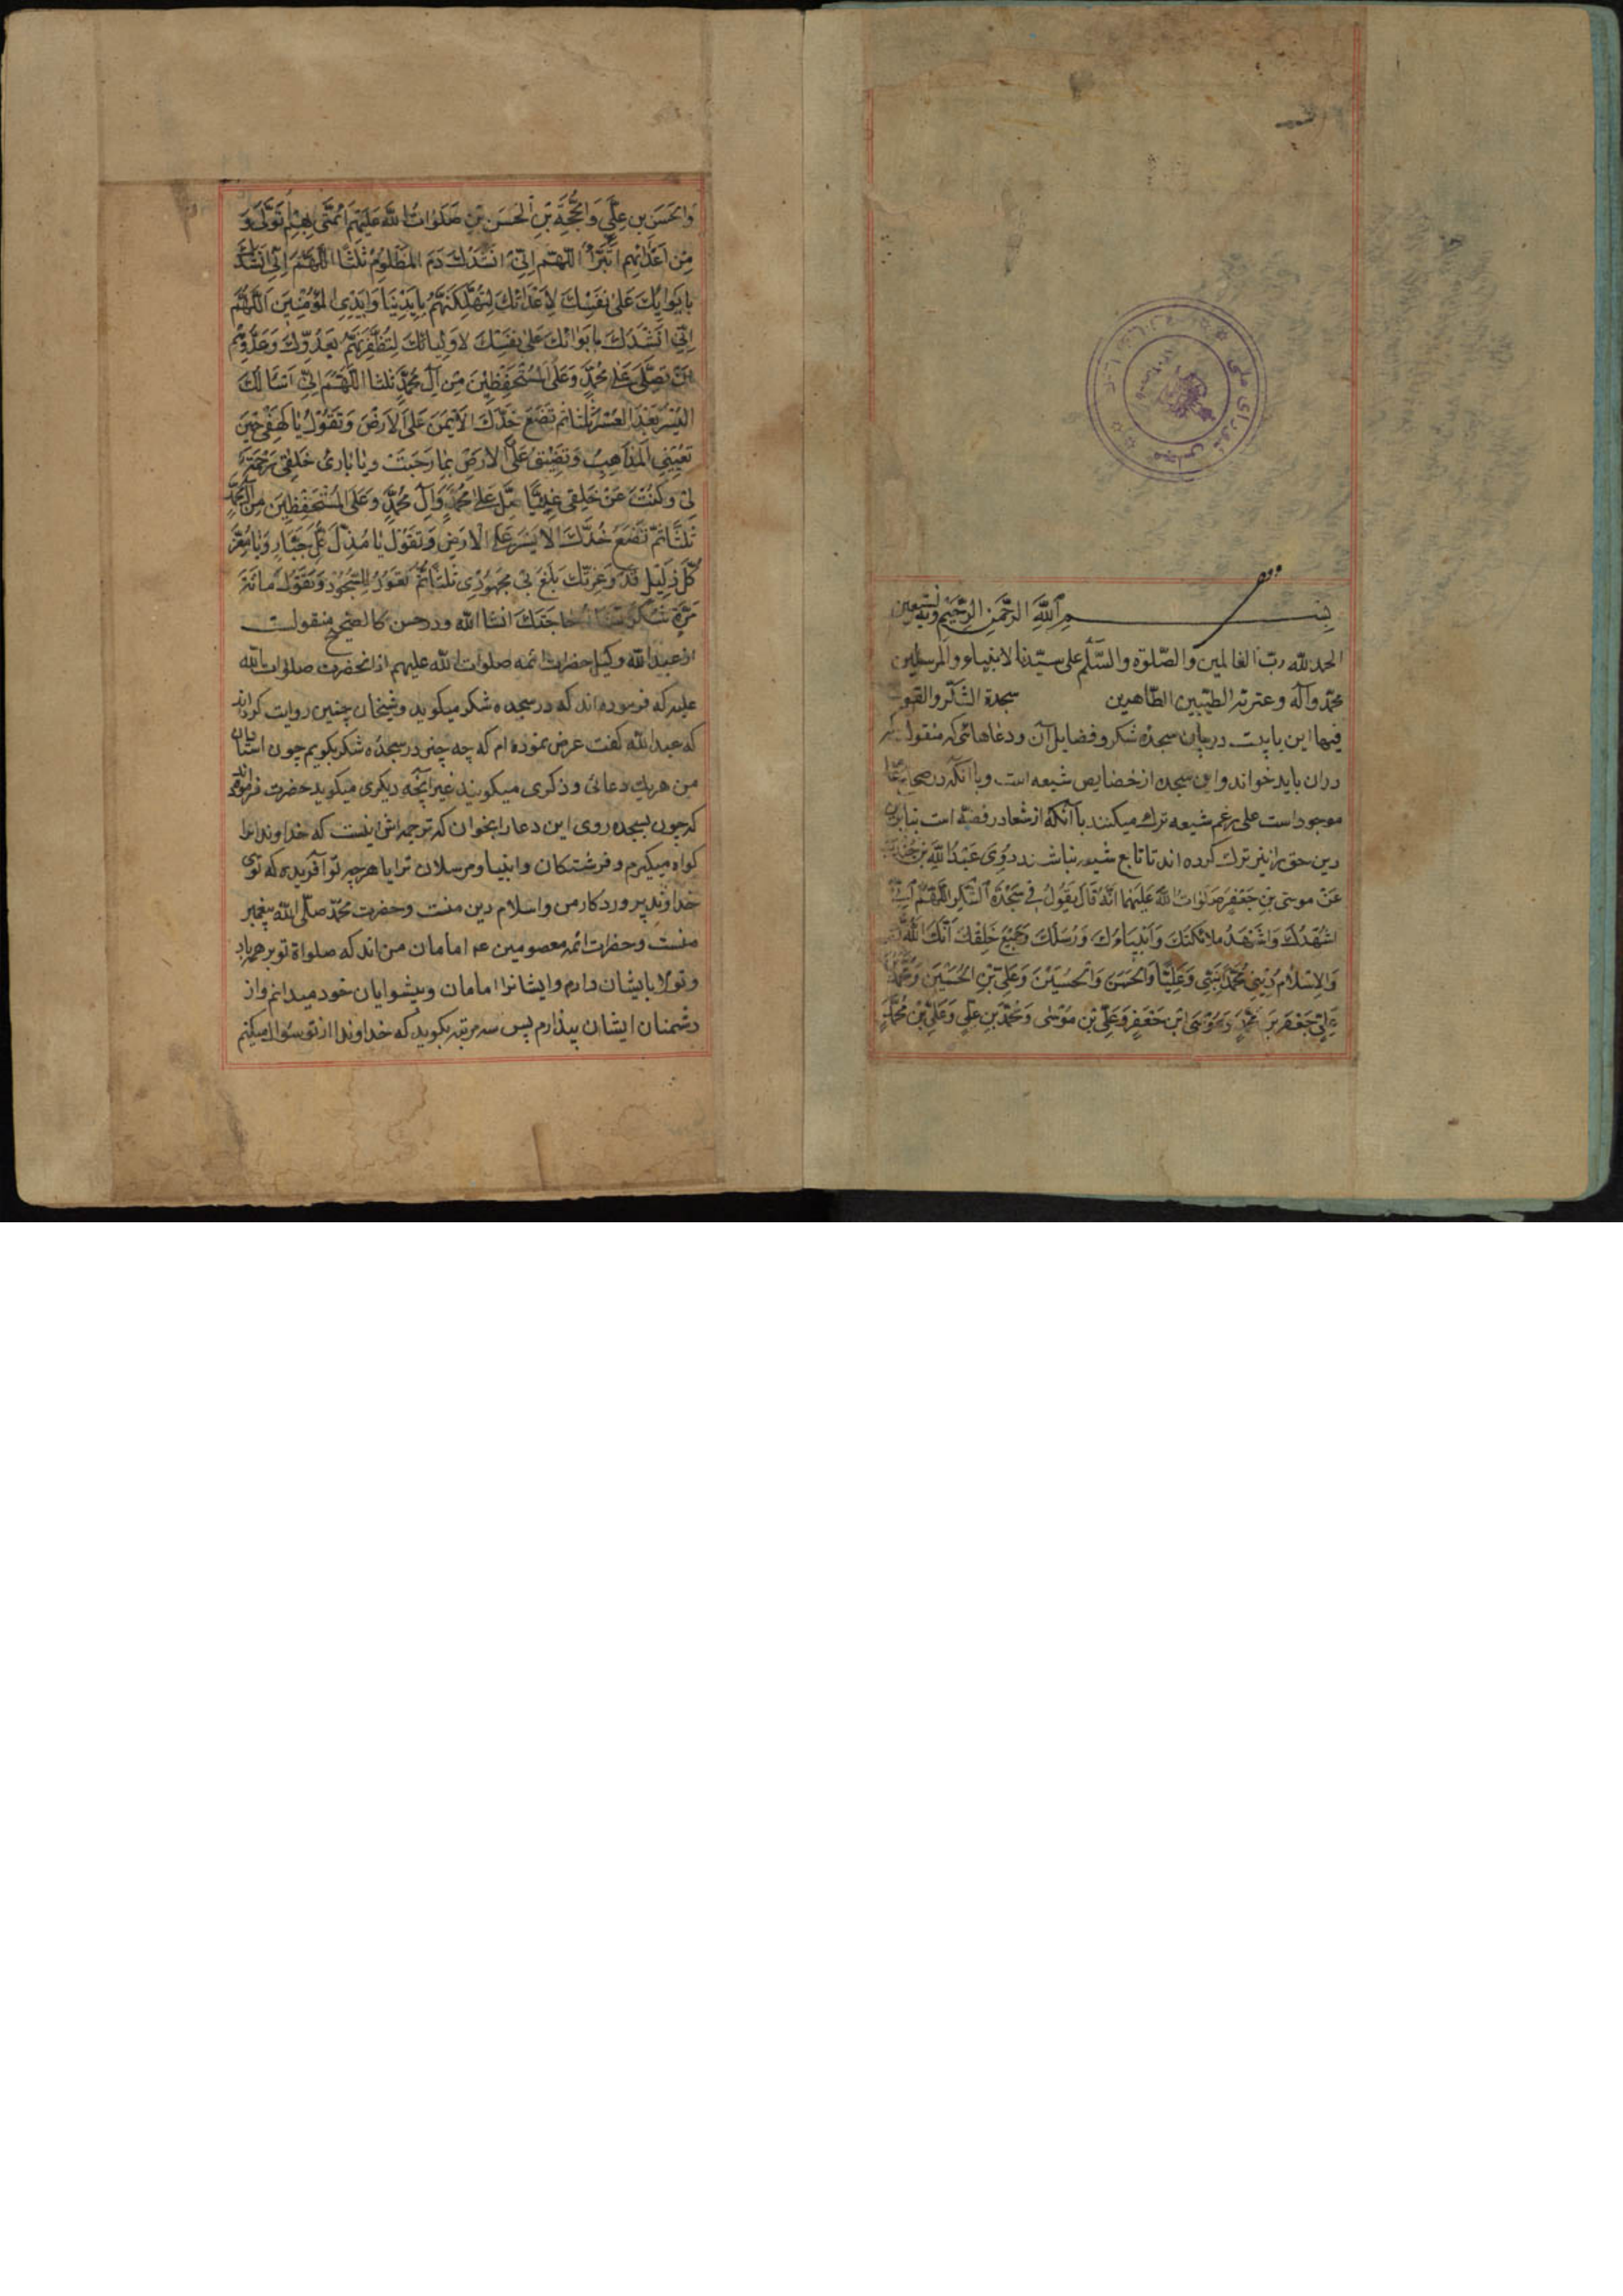 مجلس شورای ملی
بسم الله الرحمن الرحیم وبه نستعین
الحمد لله رب العالمین والصلوة والسلم علی سیدنا الانبیاء والمرسلین
محمد وآله وعترته الطیبین الطاهرین سجدة الشکر والقول
فیها این بابیست در بیان سجده شکر و فضایل آن ودعاهائی که منقولست که
دران باید خواند واین سجده از خصایص شیعه است وباآنکه در صحاح
موجود است علی رغم شیعه ترک میکنند باآنکه از شعار رفضه است بنابرین
دین حق را نیز ترک کرده اند تا تابع شیعه نباشند روی عَبْدُ اللهِ بْنِ جُنْدَب
عَنْ موسَی بْنِ جَعْفَرٍ صَلَوٰاتُ اللهِ عَلَیْهِمٰا اَنَّهُ قٰالَ یَقُولُ فِی سَجْدَةِ الشُّکْرِ اللّٰهُمَّ اِنّی
اُشْهِدُکَ وَاُشْهِدُ مَلائِکَتَکَ وَاَنْبِیٰاءَکَ وَرُسُلَکَ وَجَمیعَ خَلْقِکَ اَنَّکَ اللهُ
وَالاِسْلٰامُ دینی مُحَمَّدٌ نَبِیّی وَعَلِیّاً وَالْحَسَنَ وَالْحُسَیْنَ وَعَلِیَّ بْنَ الْحُسَیْنِ وَمُحَمَّدَ بْنَ
عَلِیٍّ جَعْفَرَ بْنَ مُحَمَّدٍ وَمُوسَی ابْنَ جَعْفَرٍ وَعَلِیَّ بْنَ مُوْسٰی وَمُحَمَّدَ بْنَ عَلِیٍّ وَعَلِیَّ بْنَ مُحَمَّدٍ
وَالْحَسَنَ بنِ عَلِیٍّ وَالْحُجَّةَ بْنَ الْحَسَنِ بْنِ صَلَوٰاتُ اللهِ عَلَیْهِمْ اَئِمَّتی بِهِمْ اَتَوَلّٰی وَ
مِنْ اَعْدٰائِهِم اَتَبَرَّأُ اللّٰهُمَّ اِنّی اَنْشُدُکَ دَمَ الْمَظْلُومِ ثلثاً اللّٰهُمَّ اِنّی اَنْشُدُکَ
بِایوٰائِکَ عَلیٰ نَفْسِکَ لِاَعْدٰائِکَ لِتُهْلِکَنَّهُمْ بِاَیْدینٰا وَاَیْدِی الْمُؤْمِنینَ اللّٰهُمَّ
اِنّی اَنْشُدُکَ بایوٰائکَ عَلیٰ نَفْسِکَ لاَوْلِیٰائِکَ لِتُظْفِرَنَّهُمْ بِعَدُوِّکَ وَعَدُوِّهِم
اَنْ تُصَلِّیَ عَلیٰ مُحَمَّدٍ وَعَلَی الْمُسْتَحْفَظینَ مِنْ آلِ مُحَمَّدٍ ثلثا اللّٰهُمَّ اِنّی اَسْأَلُکَ
الْیُسْرَ بَعْدَ الْعُسْرِ ثلثا ثم تَضَعُ خَدَّکَ الْاَیْمَنَ عَلَی الْاَرْضِ وَتَقُولُ یٰا کَهْفی حینَ
تُعْیینِی الْمَذٰاهِبُ وَتَضیقُ عَلَیَّ الْارْضُ بِمٰا رَحُبَتْ ویٰا بٰارِئَ خَلْقی رَحْمَةً
لی وَکُنْتَ عَنْ خَلْقی غَنِیّاً صَلِّ عَلیٰ مُحَمَّدٍ وَآلِ مُحَمَّدٍ وَعَلَی الْمُسْتَحْفَظینَ مِنْ آلِ مُحَمَّدٍ
ثَلٰثاً ثُمَّ تَضَعُ خَدَّکَ الْایْسَرَ عَلَی الْارْضِ وَتَقُولُ یٰا مُذِلَّ کُلِّ جَبّٰارٍ وَیٰا مُعِزَّ
کُلِّ ذَلیلٍ قَدْ وَعِزَّتِکَ بَلَغَ بی مَجْهُودی ثَلٰثاً ثُمَّ تَعُودُ لِلسُّجُودِ وَتَقُولُ مِائَةَ
مَرَّةٍ شُکْراً حٰاجَتَکَ انشا الله ودر حسن کالصحیح منقولست
از عبدالله وکیل حضرات ائمه صلوات الله علیهم از آنحضرت صلوات الله
علیه که فرموده اند که در سجده شکر میکوید وشیخان چنین روایت کرده اند
که عبدالله کفت عرض نموده ام که چه چیز در سجدهٔ شکر بکویم چون استادان
من هریک دعائی وذکری میکویند غیر آنچه دیکری میکوید حضرت فرمودند
که چون بسجده روی این دعا را بخوان که ترجمه اش اینست که خداوندا ترا
کواه میکیرم و فرشتکان وانبیا ومرسلان ترا یا هرچه تو آفریدی که توی
خداوند پروردکار من واسلام دین منست وحضرت محمد صلی الله پیغمبر
منست وحضرات ائمه معصومین عم امامان من اند که صلواة تو بر همه باد
وتولا بایشان دارم وایشانرا امامان وپیشوایان خود میدانم واز
دشمنان ایشان بیزارم پس سه مرتبه بکوید که خداوندا از تو سؤال میکنم